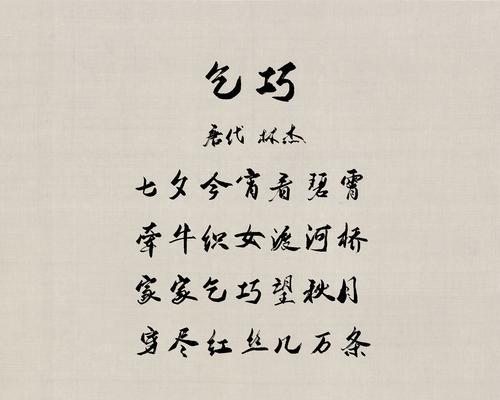 乞巧
唐代 林杰
七夕今宵看碧霄
牵牛织女渡河桥
家家乞巧望秋月
穿尽红丝几万条